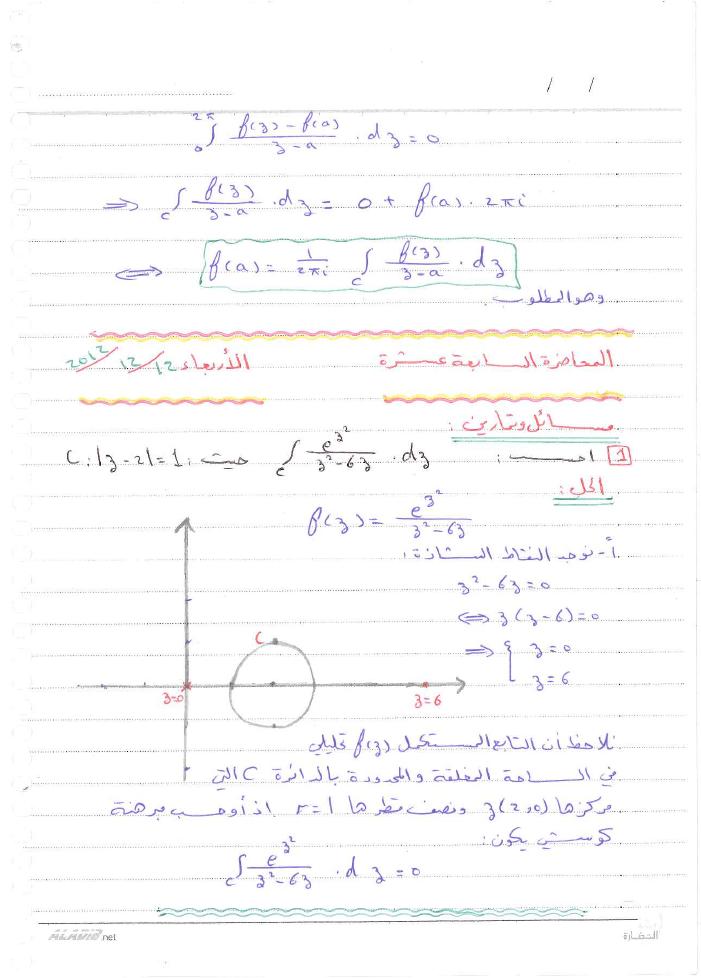 / /
∫₀^{2π} (f(z) - f(a))/(z-a) · dz = 0
⇒ ∫_C f(z)/(z-a) · dz = 0 + f(a) · 2πi
⇔ f(a) = 1/(2πi) ∫_C f(z)/(z-a) · dz
وهو المطلوب.
المحاضرة السابعة عشرة الأربعاء 12/12/2012
مسائل وتمارين:
1 احسب: ∫_C e^{z²}/(z²-6z) · dz حيث: C: |z-2|=1
الحل:
f(z) = e^{z²}/(z²-6z)
أ- نوجد النقاط الشاذة:
z²-6z=0
⇔ z(z-6)=0
⇒ { z=0
z=6
C
z=0
z=6
نلاحظ أن التابع المستكمل f(z) تحليلي
في الساحة المغلقة والمحدودة بالدائرة C التي
مركزها z(2,0) ونصف قطرها r=1 إذ أوحسب مبرهنة
كوشي يكون:
∫_C e^{z²}/(z²-6z) · dz = 0
ALAVID.net
الحضارة